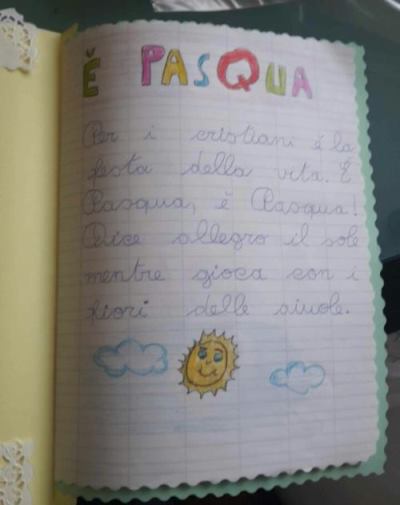 È PASQUA
Per i cristiani è la
festa della vita. È
Pasqua, è Pasqua!
Dice allegro il sole
mentre gioca con i
fiori delle aiuole.